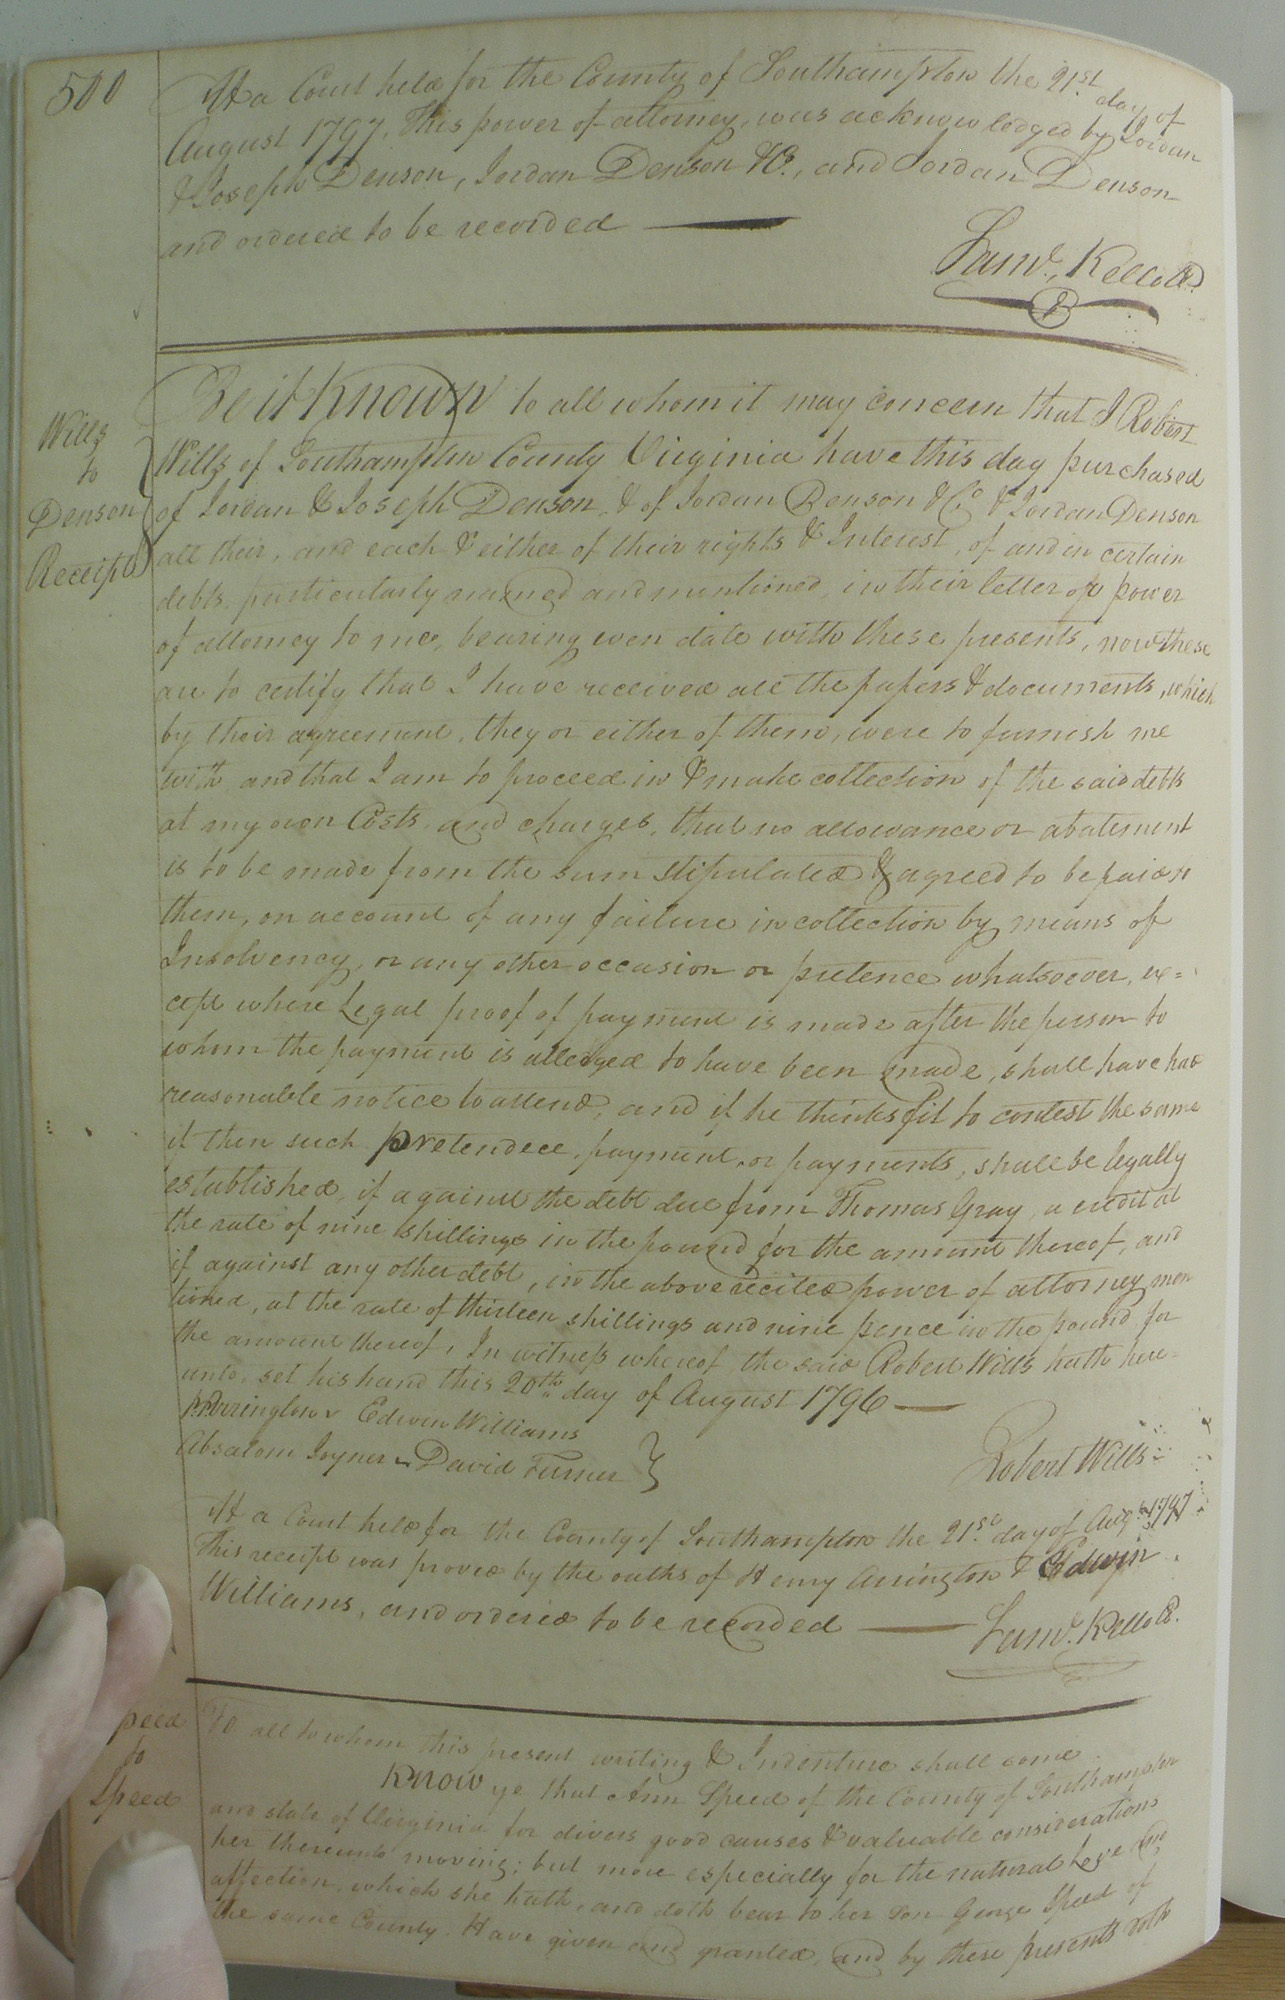 500
At a Court held for the County of Southampton the 21st day of
August 1797. This power of attorney, was acknowledged by Jordan
& Joseph Denson, Jordan Denson & Co., and Jordan Denson
and ordered to be recorded
Saml. Kello Cl.
Wills
to
Denson
Receipt
Be it Known to all whom it may concern that I Robert
Wills of Southampton County Virginia have this day purchased
of Jordan & Joseph Denson, & of Jordan Denson & Co. & Jordan Denson
all their, and each & either of their rights & Interest, of and in certain
debts particularly named and mentioned, in their letter or power
of attorney to me, bearing even date with these presents, now these
are to certify that I have received all the papers & documents, which
by their agreement, they or either of them, were to furnish me
with and that I am to proceed in & make collection of the said debts
at my own Costs and charges, that no allowance or abatement
is to be made from the sum stipulated & agreed to be paid
them, on account of any failure in collection by means of
Insolvency, or any other occasion or pretence whatsoever, ex=
cept where Legal proof of payment is made after the person to
whom the payment is alledged to have been made, shall have had
reasonable notice to attend, and if he thinks fit to contest the same
if then such pretendece, payment, or payments, shall be legally
established, if against the debt due from Thomas Gray, a credit at
the rate of nine shillings in the pound for the amount thereof, and
if against any other debt, in the above recited power of attorney men
tioned, at the rate of thirteen shillings and nine pence in the pound for
the amount thereof, In witness whereof the said Robert Wills hath here=
unto, set his hand this 20th day of August 1796
Arrington Edwin Williams
Absalom Joyner David Turner }
Robert Wills
At a Court held for the County of Southampton the 21st. day of Augt. 1797
This receipt was proved by the oaths of Henry Arrington & Edwin
Williams, and ordered to be recorded
Saml. Kello Cl.
peed
to
Speed
To all to whom this present writing & Indenture shall come
Know ye that Ann Speed of the County of Southampton
and state of Virginia for divers good causes & valuable considerations
her thereunto moving; but more especially for the natural Love and
affection, which she hath, and doth bear to her son George Speed of
the same County Have given and granted, and by these presents doth